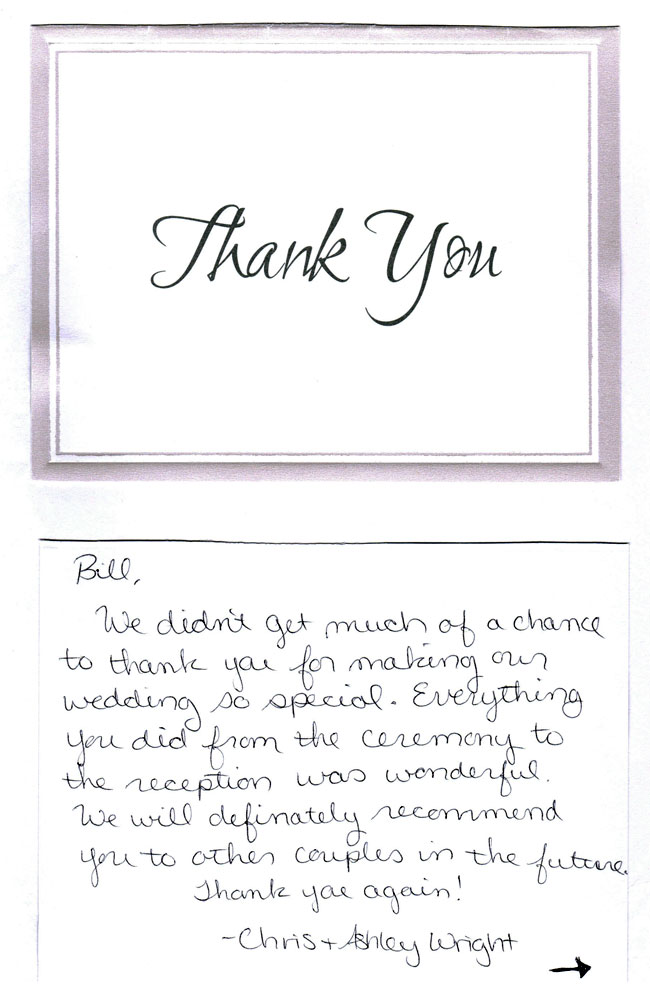 Thank You
Bill,
We didn't get much of a chance
to thank you for making our
wedding so special. Everything
you did from the ceremony to
the reception was wonderful.
We will definately recommend
you to other couples in the future.
Thank you again!
-Chris + Ashley Wright